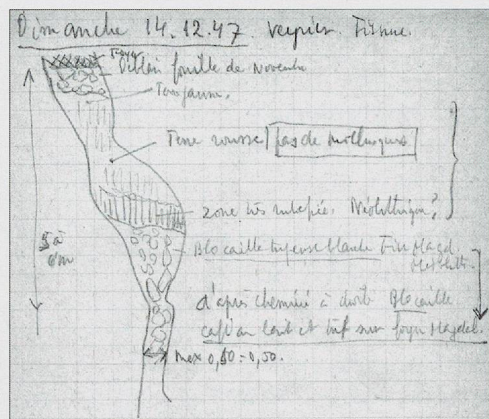 Dimanche 14.12.47. Veyrier. Fissure.
Déblais fouille de Novembre
Terre jaune.
Terre rousse pas de mollusques
zone très rubéfiée. Néolithique?
5 à
6m
Blocaille tufeuse blanche Fin Magd.
d'après cheminée à droite Blocaille
café au lait et tuf sur foyer Magdal.
max 0,40 = 0,50.